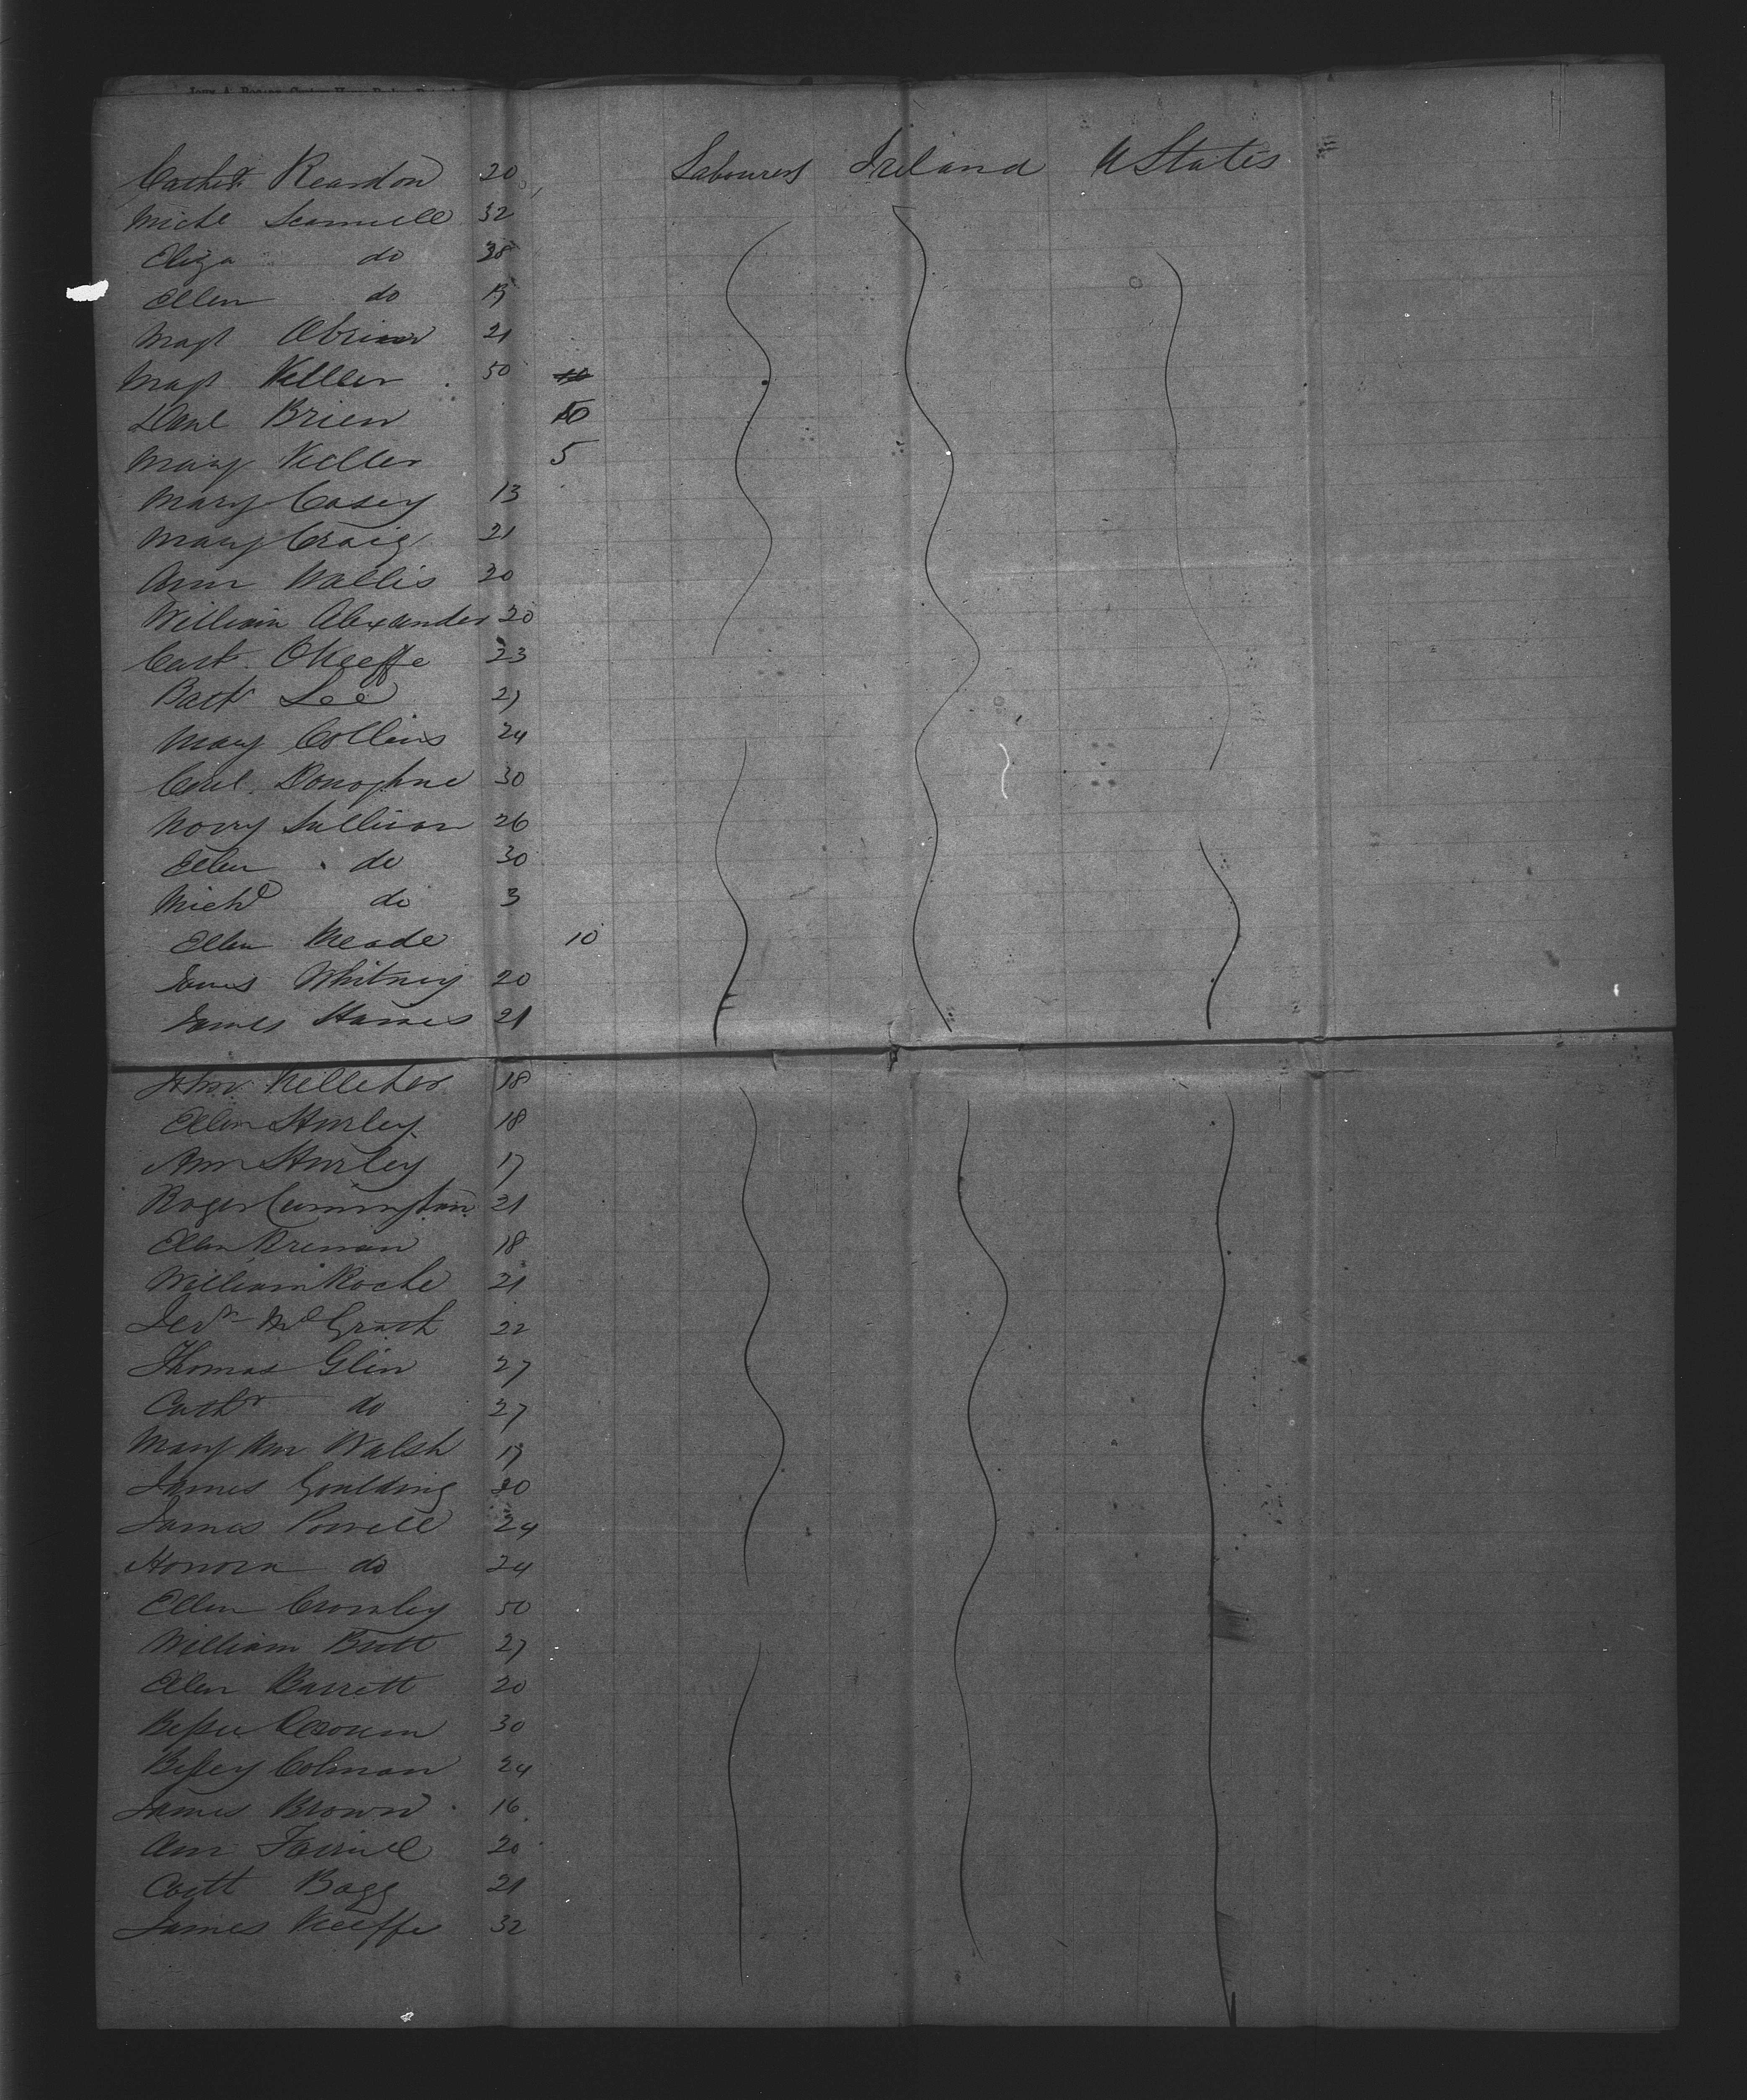 Cathr Reardon 20 Labourers Ireland U States
Michl Scannell 32
Eliza do 28
Ellen do
Magt Obrien 21
Magt Keller 50
Danl Brien 10
Mary Keller 5
Mary Casey 13
Mary Craig 21
Ann Wallis 20
William Alexander 20
Cath OKeeffe 23
Batt Lee 27
Mary Collins 24
Corel. Donoghue 30
Norry Sullivan 26
Ellen do 30
Michl do 3
Ellen Meade 10
James Whitney 20
James Haines 21
John Kelleher 18
Ellen Hurley 18
Ann Hurley 17
Roger Cunningham 21
Ellen Brenan 18
William Roche 21
Jerh McGrath 22
Thomas Glin 27
Cathr do 27
Mary Ann Walsh 19
James Goulding 20
James Powell 24
Honora do 24
Ellen Crowley 50
William Butt 27
Ellen Barrett 20
Bessie 30
Bessey Colman 24
James Brown 16
Ann Farrell 20
Catt Bagg 21
James Keeffe 32